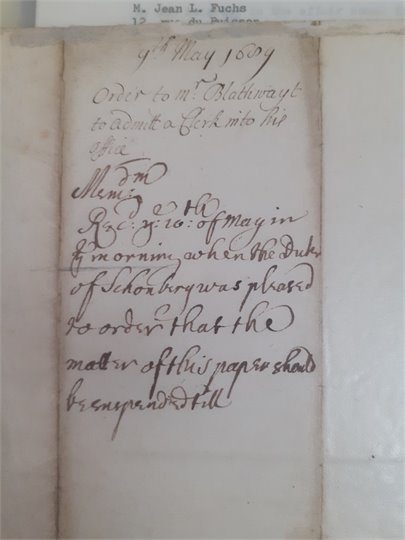 M. Jean L. Fuchs
12, rue du Buisson
9th May 1689
Order to mr. Blathwayt
to admitt a Clerk into his
office
Memdm
Recd: ye: 10th: of May in
ye morning when the Duke
of Schonberg was pleased
to order that the
matter of this paper should
be suspended till